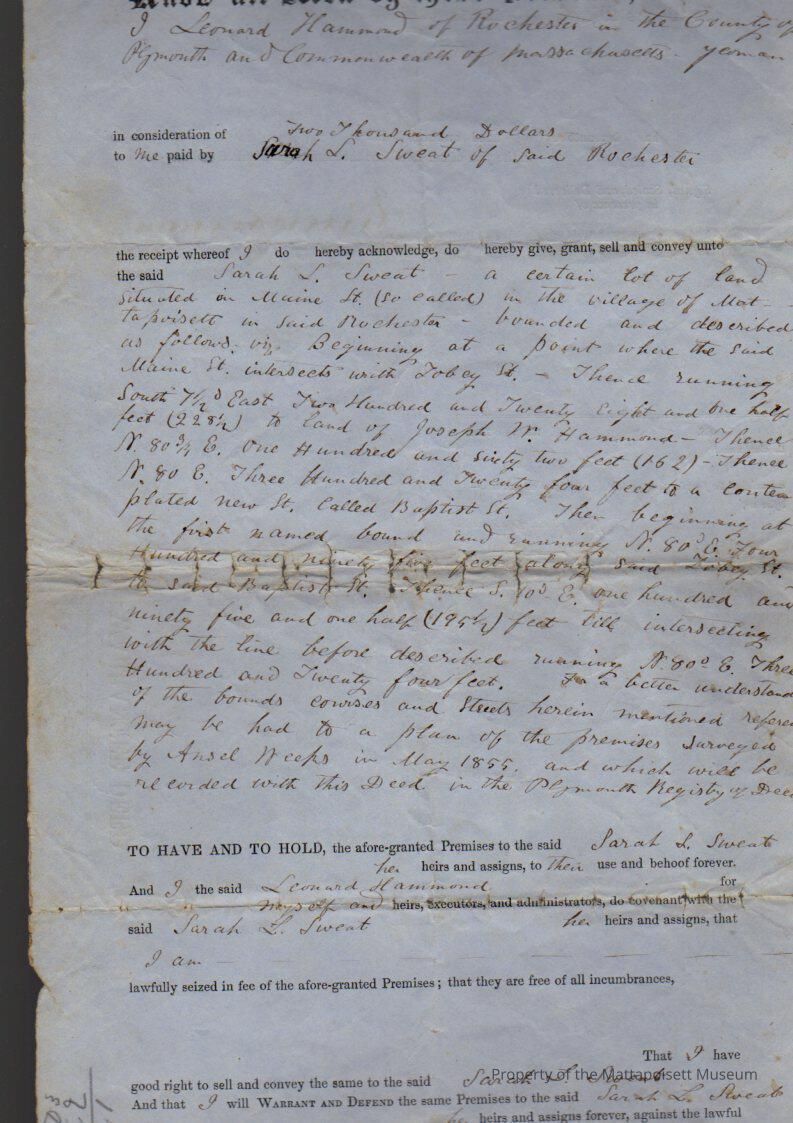 Know all Men by these Presents,
I Leonard Hammond of Rochester in the County of
Plymouth and Commonwealth of Massachusetts - yeoman
in consideration of Two Thousand Dollars
to me paid by Sarah L. Sweat of said Rochester
the receipt whereof I do hereby acknowledge, do hereby give, grant, sell and convey unto
the said Sarah L. Sweat - a certain lot of land
situated on Maine St. (so called) in the village of Mat-
tapoisett in said Rochester - bounded and described
as follows. viz. Beginning at a point where the said
Maine St. intersects with Tobey St. - Thence running
South 7½° East Two Hundred and Twenty Eight and one half
feet (228½) to land of Joseph W. Hammond - Thence
N. 80¾ E. One Hundred and sixty two feet (162) - Thence
N. 80 E. Three Hundred and Twenty four feet to a contem
plated new St. called Baptist St. Then beginning at
the first named bound and running N. 80° E. Four
Hundred and ninety five feet along said Tobey St.
to said Baptist St. Thence S. 10° E. one hundred and
ninety five and one half (195½) feet till intersecting
with the line before described running N. 80° E. Three
Hundred and Twenty four feet. For a better understand
of the bounds courses and Streets herein mentioned referen
may be had to a plan of the premises surveyed
by Ansel Weeks in May 1855. and which will be
recorded with this Deed in the Plymouth Registry of Deed
TO HAVE AND TO HOLD, the afore-granted Premises to the said Sarah L. Sweat
her heirs and assigns, to their use and behoof forever.
And I the said Leonard Hammond for
myself and heirs, executors, and administrators, do covenant with the
said Sarah L. Sweat her heirs and assigns, that
I am
lawfully seized in fee of the afore-granted Premises; that they are free of all incumbrances,
That I have
good right to sell and convey the same to the said Sarah L. Sweat
Property of the Mattapoisett Museum
And that I will WARRANT AND DEFEND the same Premises to the said Sarah L. Sweat
her heirs and assigns forever, against the lawful